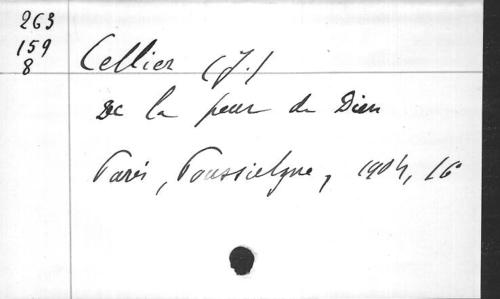 263
159
8
Cellier (J.)
De la peur de Dieu
Paris, Poussielgue, 1904, 16°